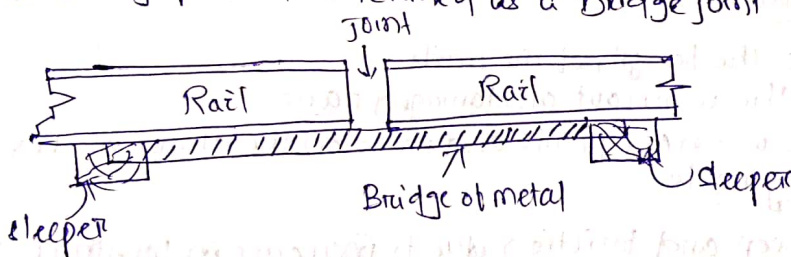 as a Bridge joint
Joint
Rail Rail
Bridge of metal
sleeper
sleeper